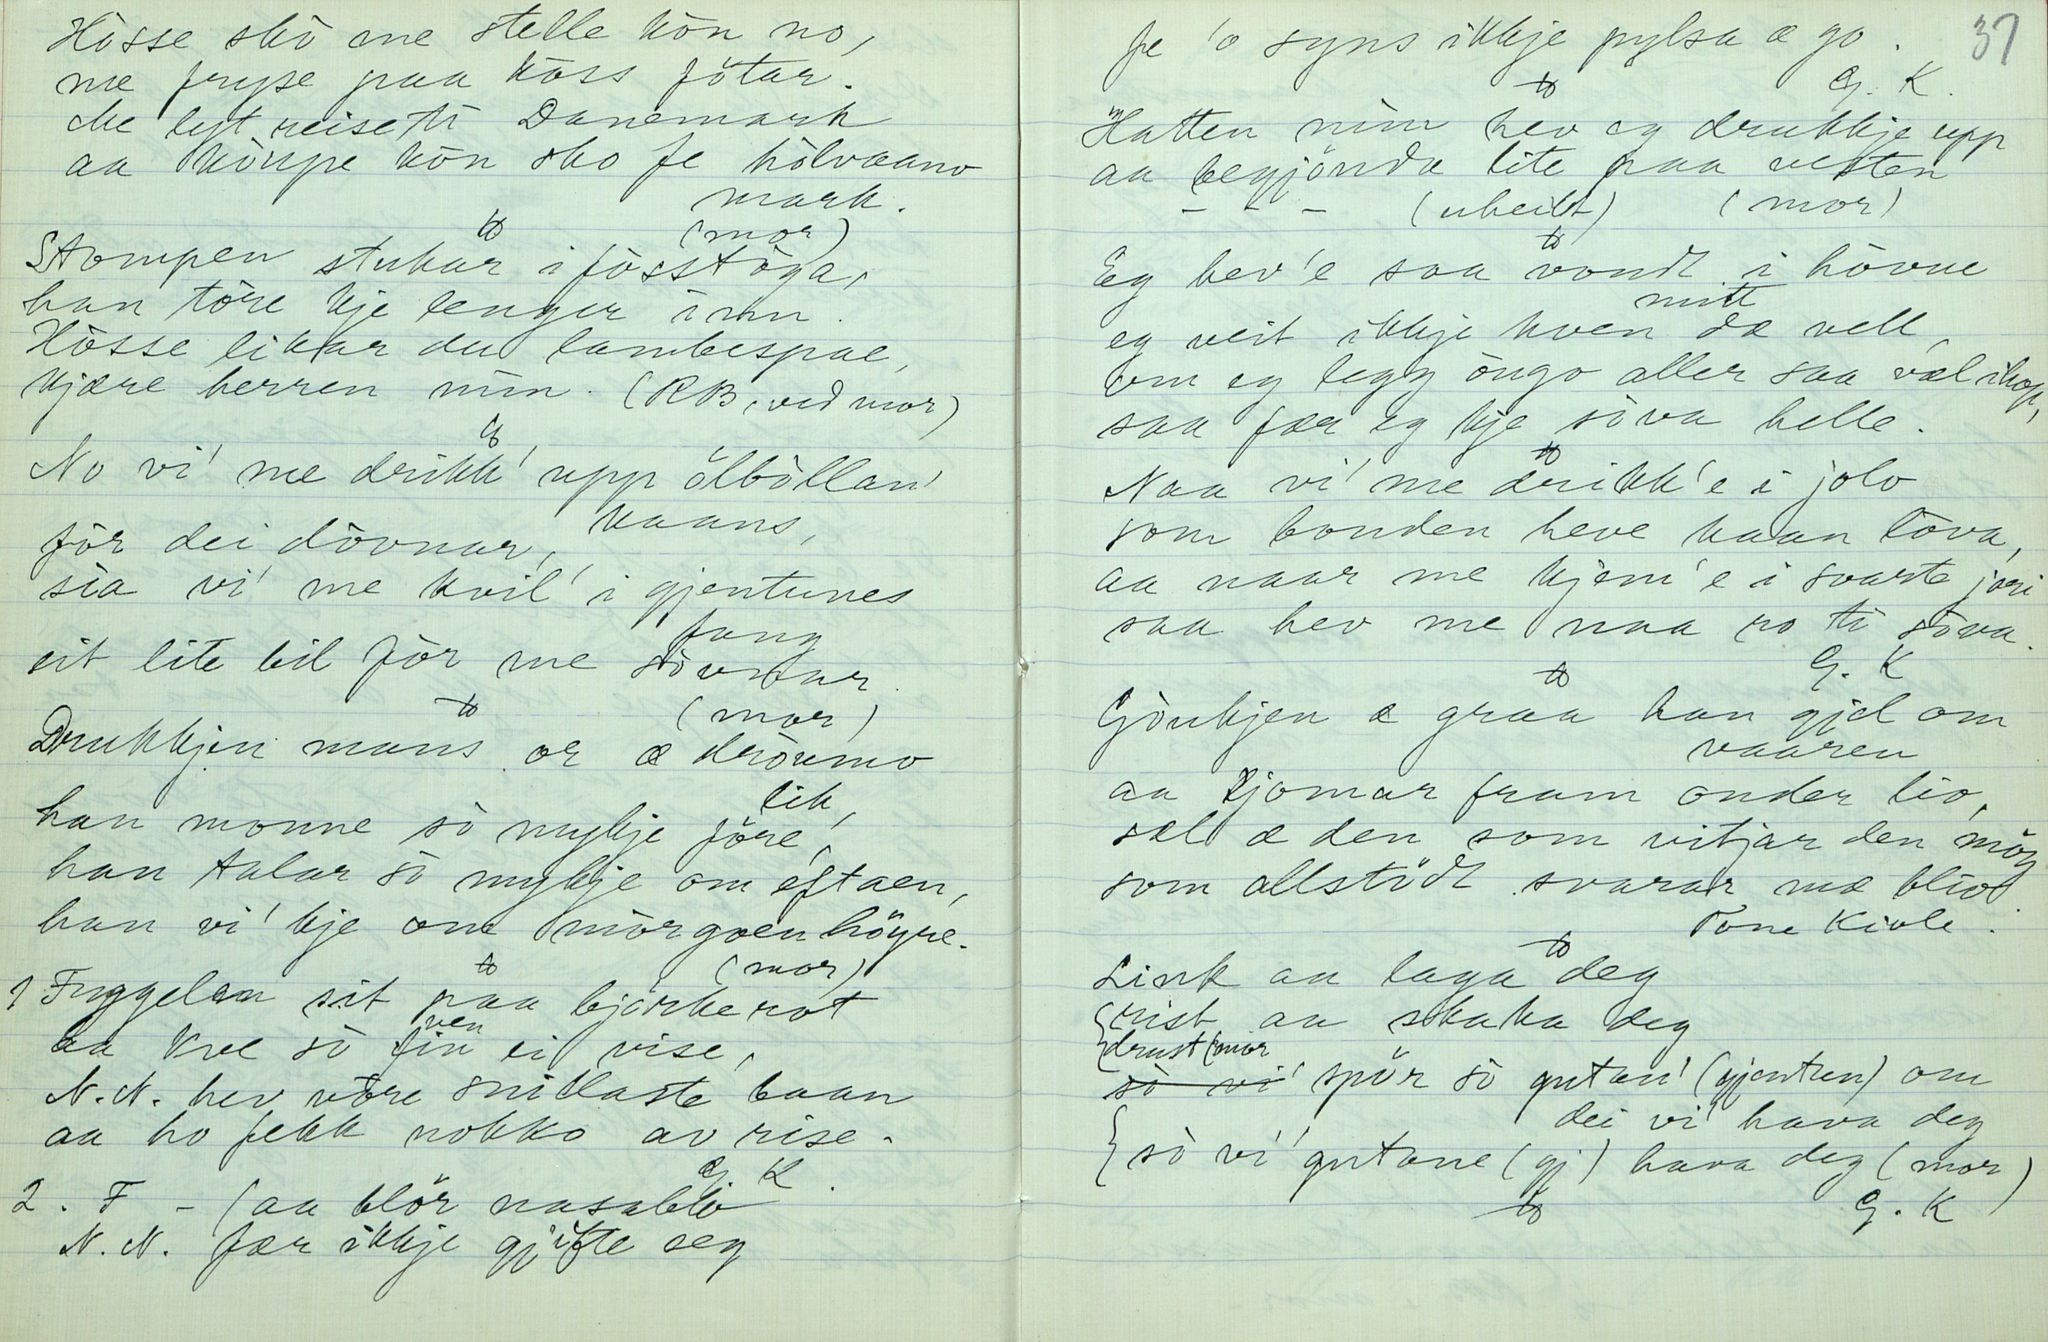 Hòsse skò me stelle kòn no,
me fryse paa kòss fötar.
Me lyt reise ti Danemark
aa kòupe kòn sko fe hòlvaano
mark.
(mor)
Stompen stukar i fòsstòga,
han töre kje lenger inn.
Hòsse likar du lambespæ,
kjære herren min. (RB, ved mor)
No vi' me drikk' upp ölbòllan'
kaans,
för dei dòvnar,
sia vi' me kvil' i gjentunes
fang
eit lite bil för me sòvnar.
(mor)
Drukkjen mans or æ dròumo
lik,
han monne sò mykje före,
han talar sò mykje om eftaen,
han vi' kje om mòrgoen höyre.
(mor)
1 Fuggelen sit paa bjørkerot
aa kve sò fin ven ei vise,
N.N. hev vòre snillaste baan
aa ho fekk nokko av rise.
G. K.
2. F - (aa blör nasablò
N.N. fær ikkje gjifte seg
37
fe 'o syns ikkje pylsa æ go.
G. K.
Hatten min hev eg drukkje upp
aa begjönda lite paa vesten
- - - (uheilt) (mor)
Eg hev'e saa vondt i hòvue
mitt
eg veit ikkje kven dæ vell,
om eg legg òngo aller saa væl ihop,
saa fær eg kje sòva helle.
Naa vi' me drikk'e i jolo
som bonden heve kaan lòva,
aa naar me kjem'e i svarte jori
saa hev me naa ro ti sòva.
G. K
Gòukjen æ graa han gjel om
vaaren
aa kjomar fram onder lio,
sæl æ den som vitjar den möy
som allstödt svarar mæ blio.
Tone Kivle.
Link aa laga deg
{rist aa skaka deg
{drust (mor
sò vi' spör sò gutan' (gjentun) om
dei vi' hava deg
{ sò vi' gutane (gj) hava deg (mor)
G. K